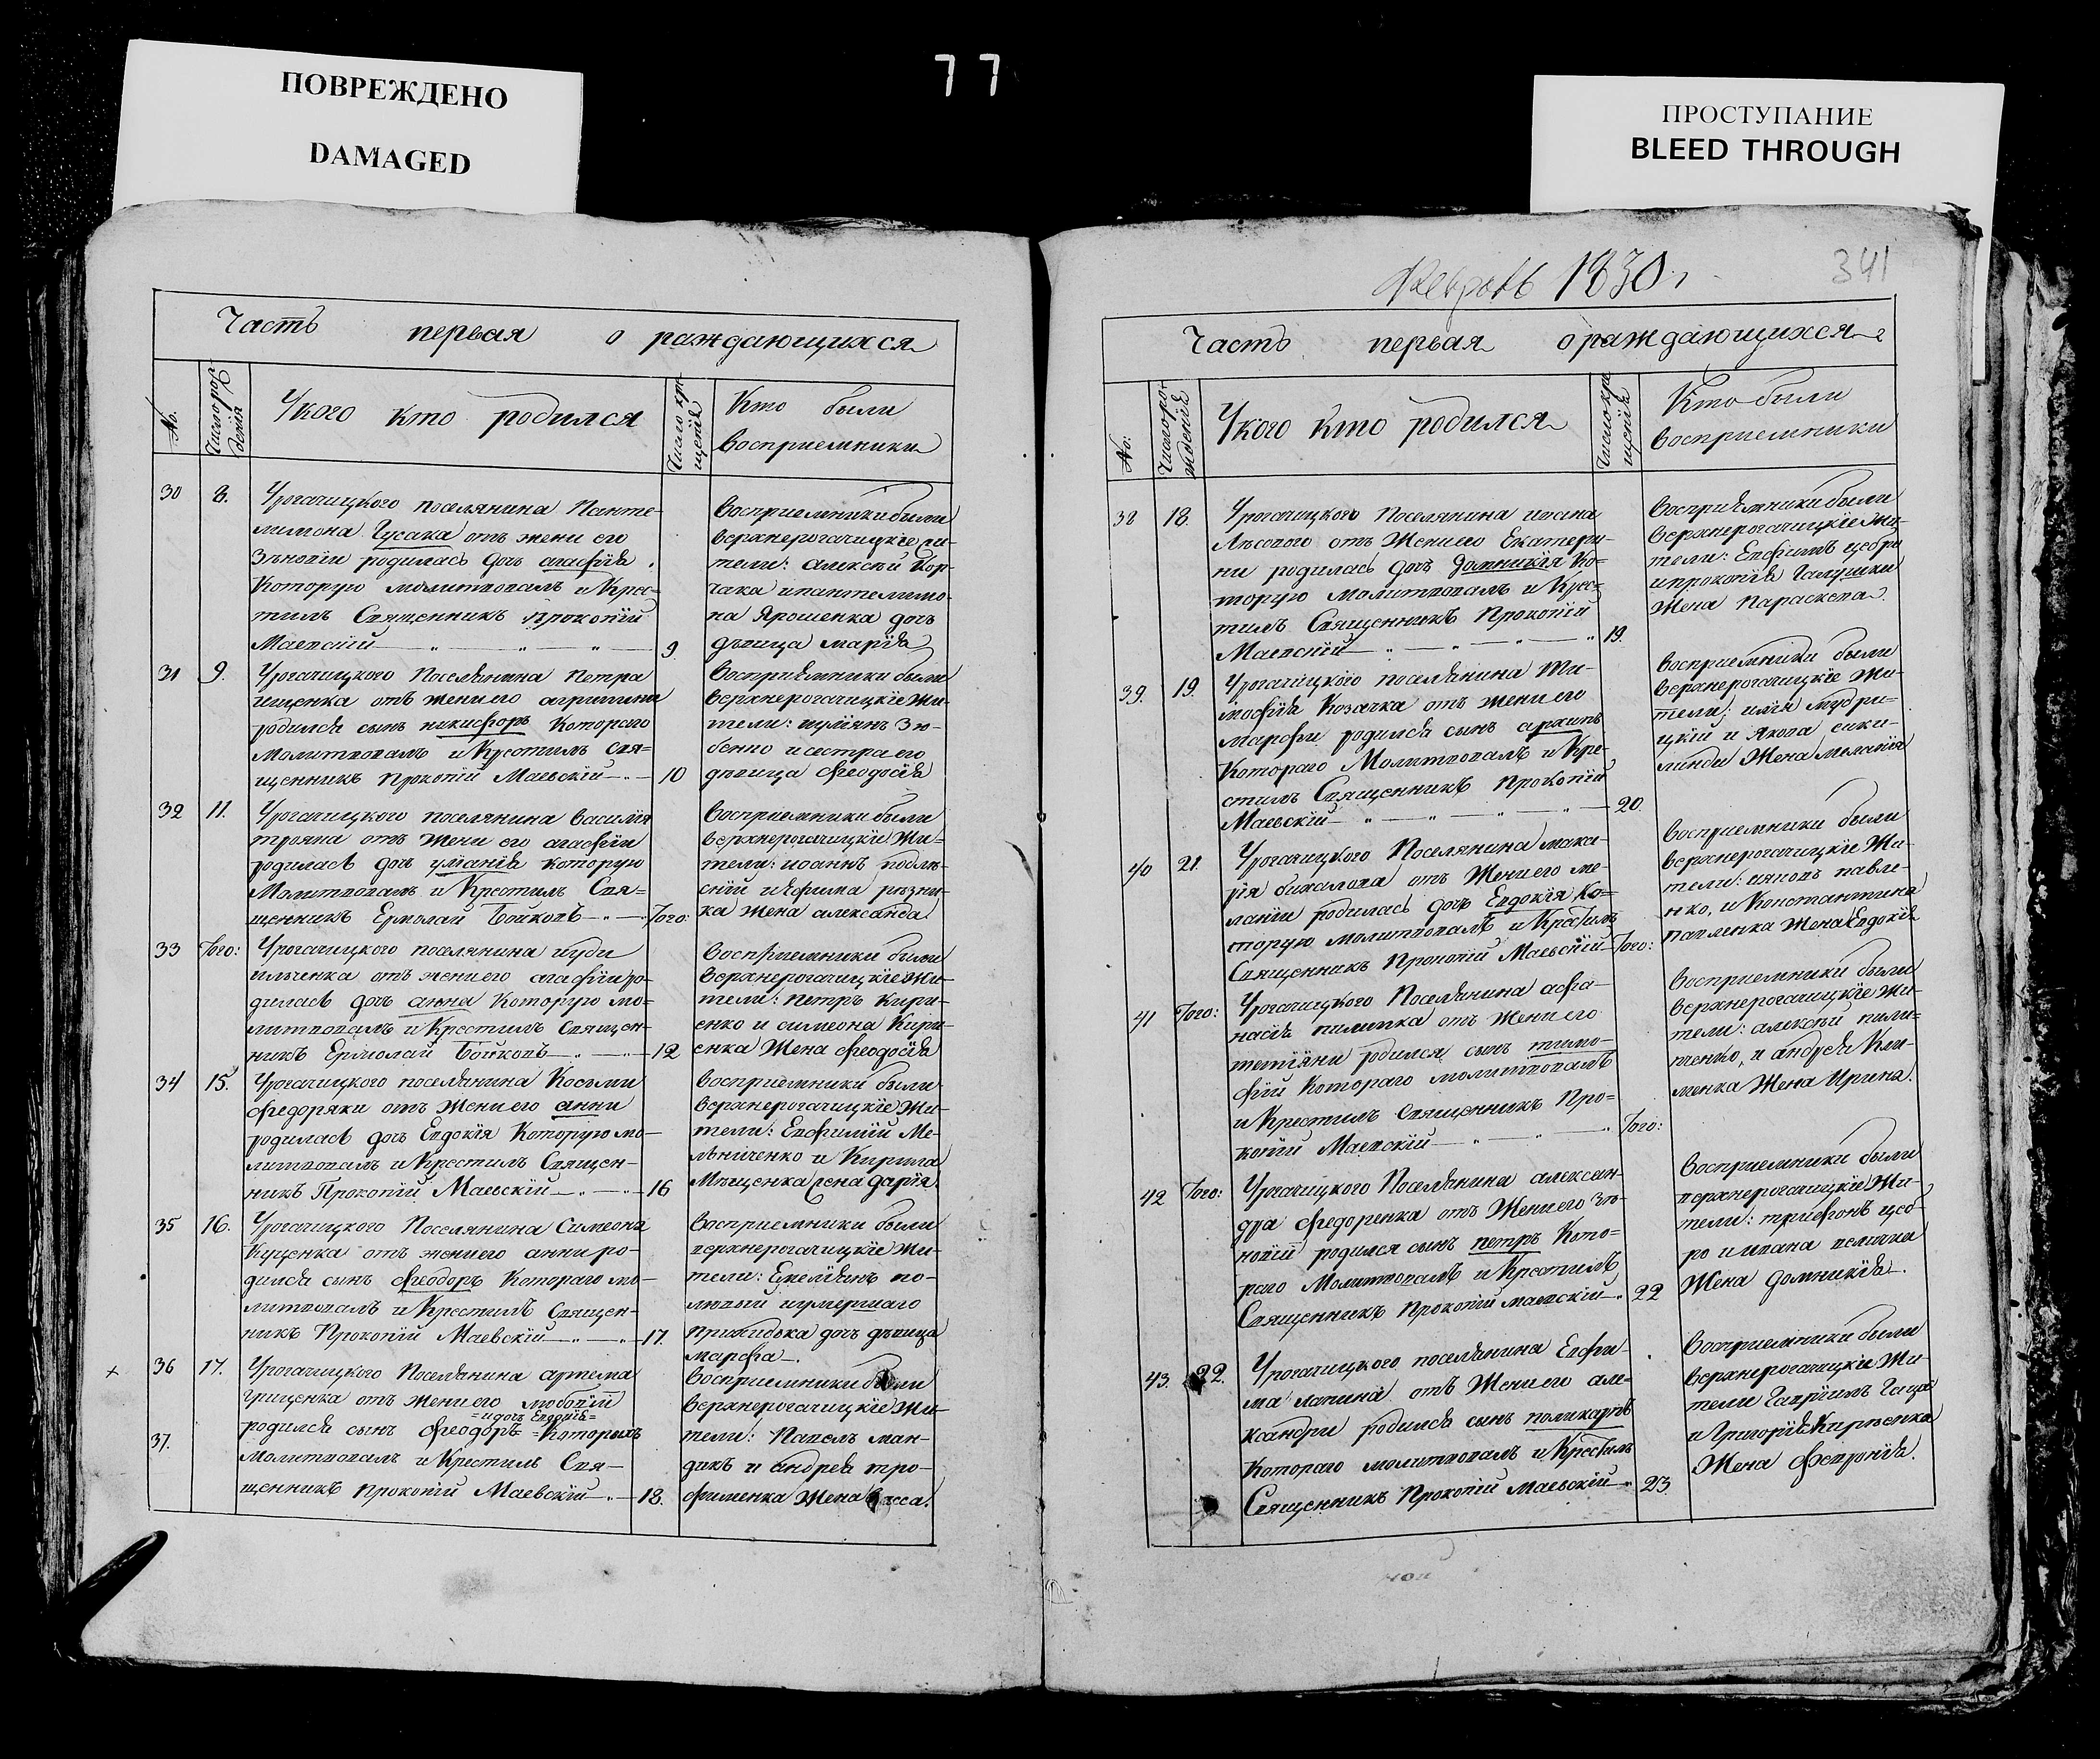 ПОВРЕЖДЕНО
DAMAGED
77
ПРОСТУПАНИЕ
BLEED THROUGH
Часть первая о раждающихся
No.
Число рож
денія
У кого кто родился
Число кре
щенія
Кто были
восприемники
30 8. Урогачицкого поселянина Панте-
лимона Гусака отъ жени его
Зѣновіи родилась дочь агафія
Которую молитвовалъ и Крес-
тилъ Священникъ Прокопій
Маевскій 9
восприемники были
верхнерогачицкіе жи-
тели: алексѣй Кор-
чака и пантелимо-
на Ярошенка дочь
дѣвица марія
31 9. Урогачицкого Поселянина Петра
ищенка отъ жени его агрипини
родился сынъ никифоръ Котораго
Молитвовалъ и Крестилъ свя-
щенникъ Прокопій Маевскій 10
Восприемники были
верхнерогачицкіе Жи-
тели:
и сестра его
дѣвица феодосія
32 11. Урогачицкого поселянина василія
трояна отъ жени его агафіи
родилась дочь уліанія которую
Молитвовалъ и Крестилъ Свя-
щенникъ Ермолай Бойковъ Того:
Восприемники были
верхнерогачицкіе Жи-
тели: иоаннъ подлѣ-
сній и ефима рѣзни-
ка жена александа
33 Того: Урогачицкого поселянина иуди
ильченка отъ жени его агафіи ро-
дилась дочь анна Которую мо-
литвовалъ и Крестилъ Священ-
никъ Ермолай Бойковъ 12
Восприемники были
верхнерогачицкіе Жи-
тели: петръ Кири-
енко и симеона Кири-
енка Жена феодосія
34 15. Урогачицкого поселянина Косьми
федоряки отъ Жени его анни
родилась дочь Евдокія Которую мо-
литвовалъ и Крестилъ Священ-
никъ Прокопій Маевскій 16
Восприемники были
верхнерогачицкіе Жи-
тели: Евфимій Ме-
льниченко и Кирила
Мѣщенка жена дарія
35 16. Урогачицкого Поселянина Симеона
Куценка отъ жени его анни ро-
дился сынъ феодоръ Котораго мо-
литвовалъ и Крестилъ Священ-
никъ Прокопій Маевскій 17.
восприемники были
верхнерогачицкіе Жи-
тели: Емеліянъ по-
ловый иумершаго
дочь дѣвица
марфа.
36 17. Урогачицкого Поселянина артема
Грищенка отъ жени его любовіи
=и дочь Евдокія=
37. родился сынъ феодоръ Которыхъ
Молитвовалъ и Крестилъ Свя-
щенникъ прокопій Маевскій 18.
Восприемники были
верхнерогачицкіе Жи-
тели: Павелъ ман-
дикъ и андрея тро-
фименка Жена васса.
Февраль 1830 г
341
Часть первая о раждающихся
No:
Число ро-
жденія
У кого кто родился
Число кре
щенія
Кто были
восприемники
38 18. Урогачицкого Поселянина иоана
Лѣсового отъ Жени его Екатери-
ни родилась дочь домникія Ко-
торую молитвовалъ и Крес-
тилъ Священникъ Прокопій
Маевскій 19.
восприемники были
верхнерогачицкіе жи-
тели: Евфимъ цебро
и прокопія Галушки
Жена Параскева.
39. 19. Урогачицкого поселянина Ти-
мофія Козачка отъ жени его
марфи родился сынъ архипъ
Котораго Молитвовалъ и Кре-
стилъ Священникъ Прокопій
Маевскій 20.
восприемники были
верхнерогачицкіе Жи-
тели: илія мудри-
цкій и Якова
Жена меланія
40 21. Урогачицкого Поселянина мака-
рія бижалова отъ Жени его ме-
ланіи родилась дочь Евдокія Ко-
торую молитвовалъ и Крестилъ
Священникъ Прокопій Маевскій Того:
восприемники были
верхнерогачицкіе Жи-
тели: иаковъ павле-
нко, и Константина
павленка Жена Евдокія
41 Того: Урогачицкого Поселянина афа-
насія пилипка отъ Жени его
тетіяни родился сынъ тимо-
фій Котораго молитвовалъ
и Крестилъ Священникъ Про-
копій Маевскій Того:
Восприемники были
верхнерогачицкіе жи-
тели: алексѣй пили-
пченко, и андрея Кли-
менка Жена Ирина.
42 Того: Урогачицкого Поселянина алексан-
дра федоренка отъ Жени его Зѣ-
новіи родился сынъ петръ Кото-
раго Молитвовалъ и Крестилъ
Священникъ Прокопій маевскій 22
восприемники были
верхнерогачицкіе Жи-
тели: трифонъ цеб-
ро и ивана величка
Жена домникія.
43. 22. Урогачицкого поселянина Евфи-
ма лапина отъ Жени его але-
ксандри родился сынъ поликарпъ
Котораго молитвовалъ и Крестилъ
Священникъ Прокопій маевскій 23
восприемники были
верхнерогачицкіе Жи-
тели Гавріилъ Гаца
и Григорія Кирѣенка
Жена Февронія.